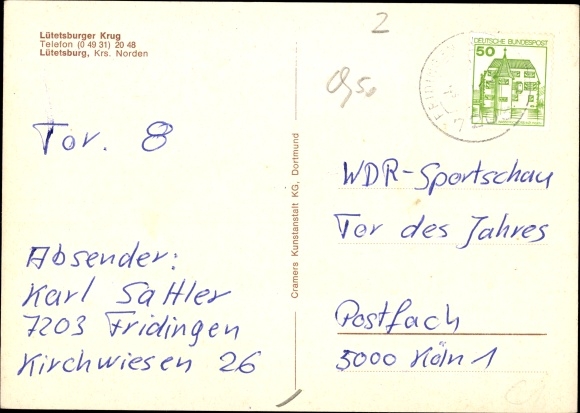 Lütetsburger Krug
Telefon (0 49 31) 20 48
Lütetsburg, Krs. Norden
Tor. 8
Absender:
Karl Sattler
7203 Fridingen
Kirchwiesen 26
Cramers Kunstanstalt KG, Dortmund
2
0,50
DEUTSCHE BUNDESPOST
50
WDR-Sportschau
Tor des Jahres
Postfach
5000 Köln 1